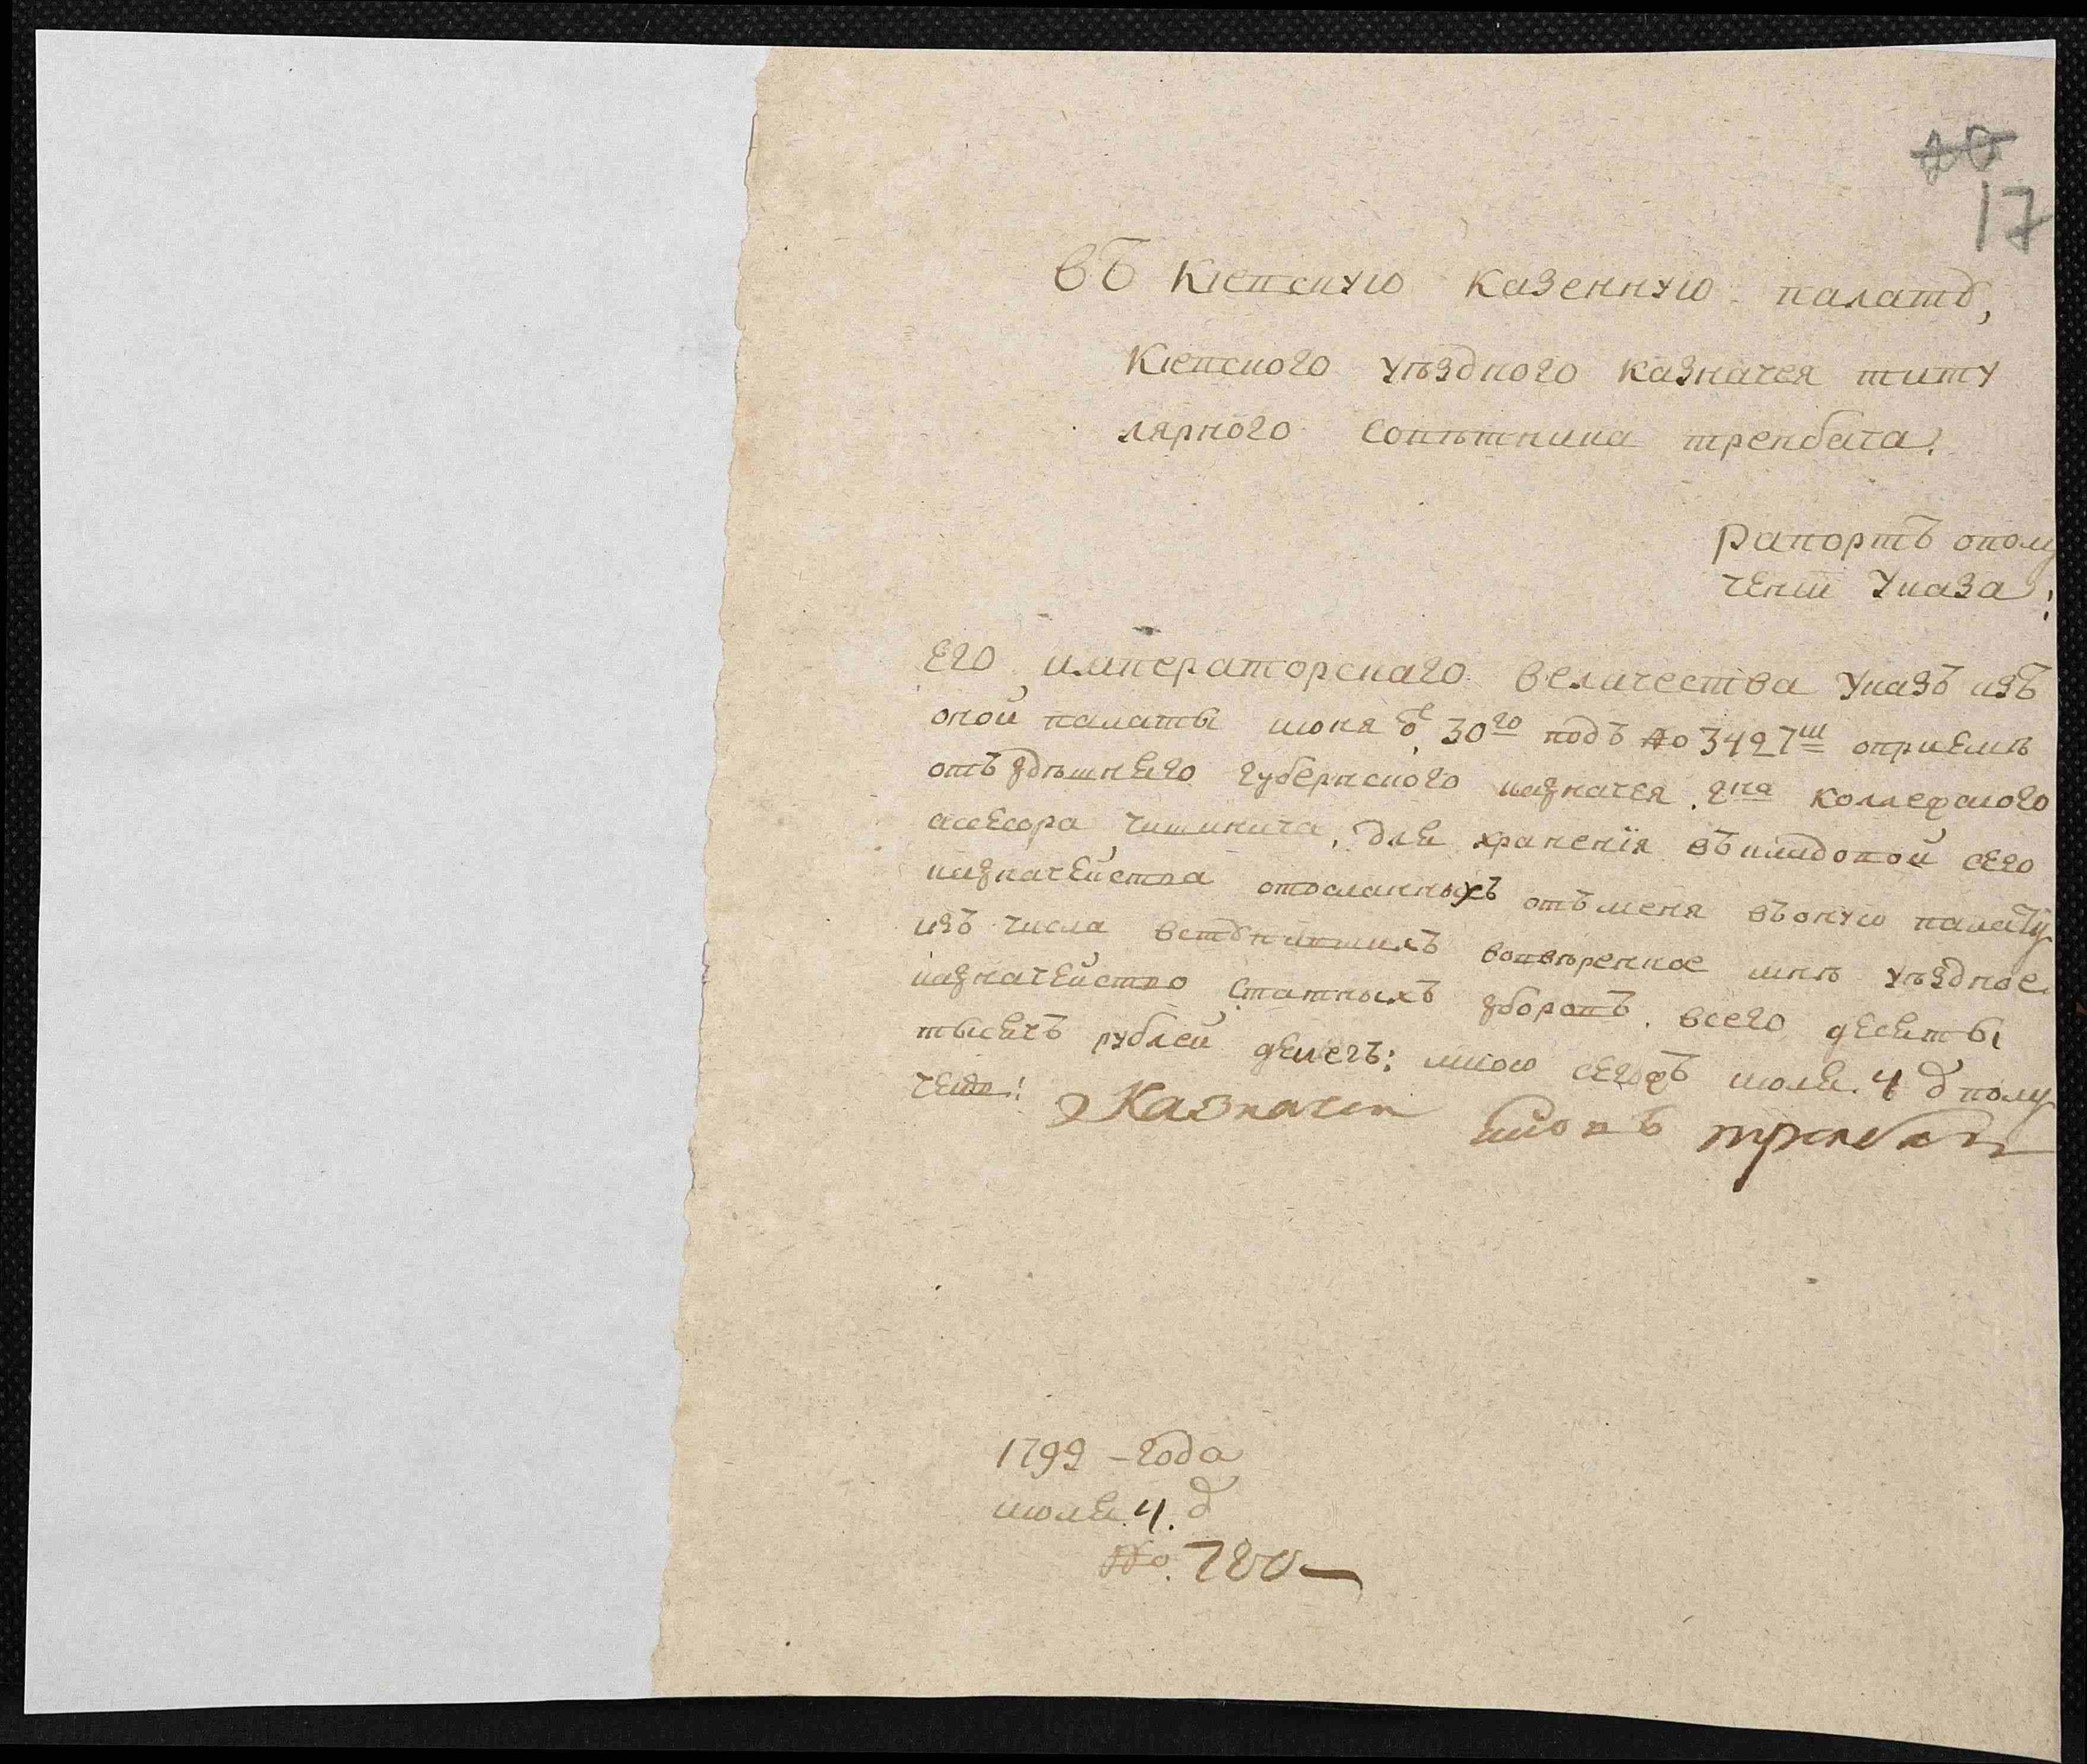 17
въ Киевскую казенную палату,
Киевского уѣздного казначея титу
лярного советника трембача.
Рапортъ ополу
чении Указа:
Его императорскаго величества Указъ изъ
оной палаты июня 30го подъ No 3427ш оприемѣ
отъ здѣшнего губернского казначея гна коллежского
асесора, для хранения въ кладовой сего
казначейства отосланныхъ отъ меня въ оную палату
изъ числа вступившихъ вовверенное мнѣ уѣздное
казначейство статныхъ зборовъ всего десять
тысячъ рублей денегъ: мною сегожъ июля 4 д полу
ченъ:
Казначей трембач
1799 - года
июля 4. д
No. 780